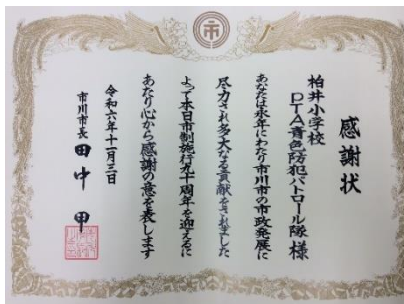 感謝状
柏井小学校
PTA青色防犯パトロール隊 様
あなたは永年にわたり市川市の市政発展に
尽力され多大なる貢献をされました
よって本日市制施行九十周年を迎えるに
あたり心から感謝の意を表します
令和六年十一月三日
市川市長 田中 甲